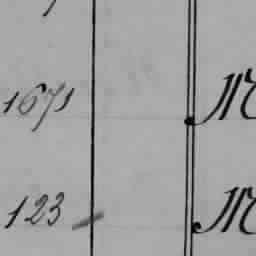 1671 M
123 M